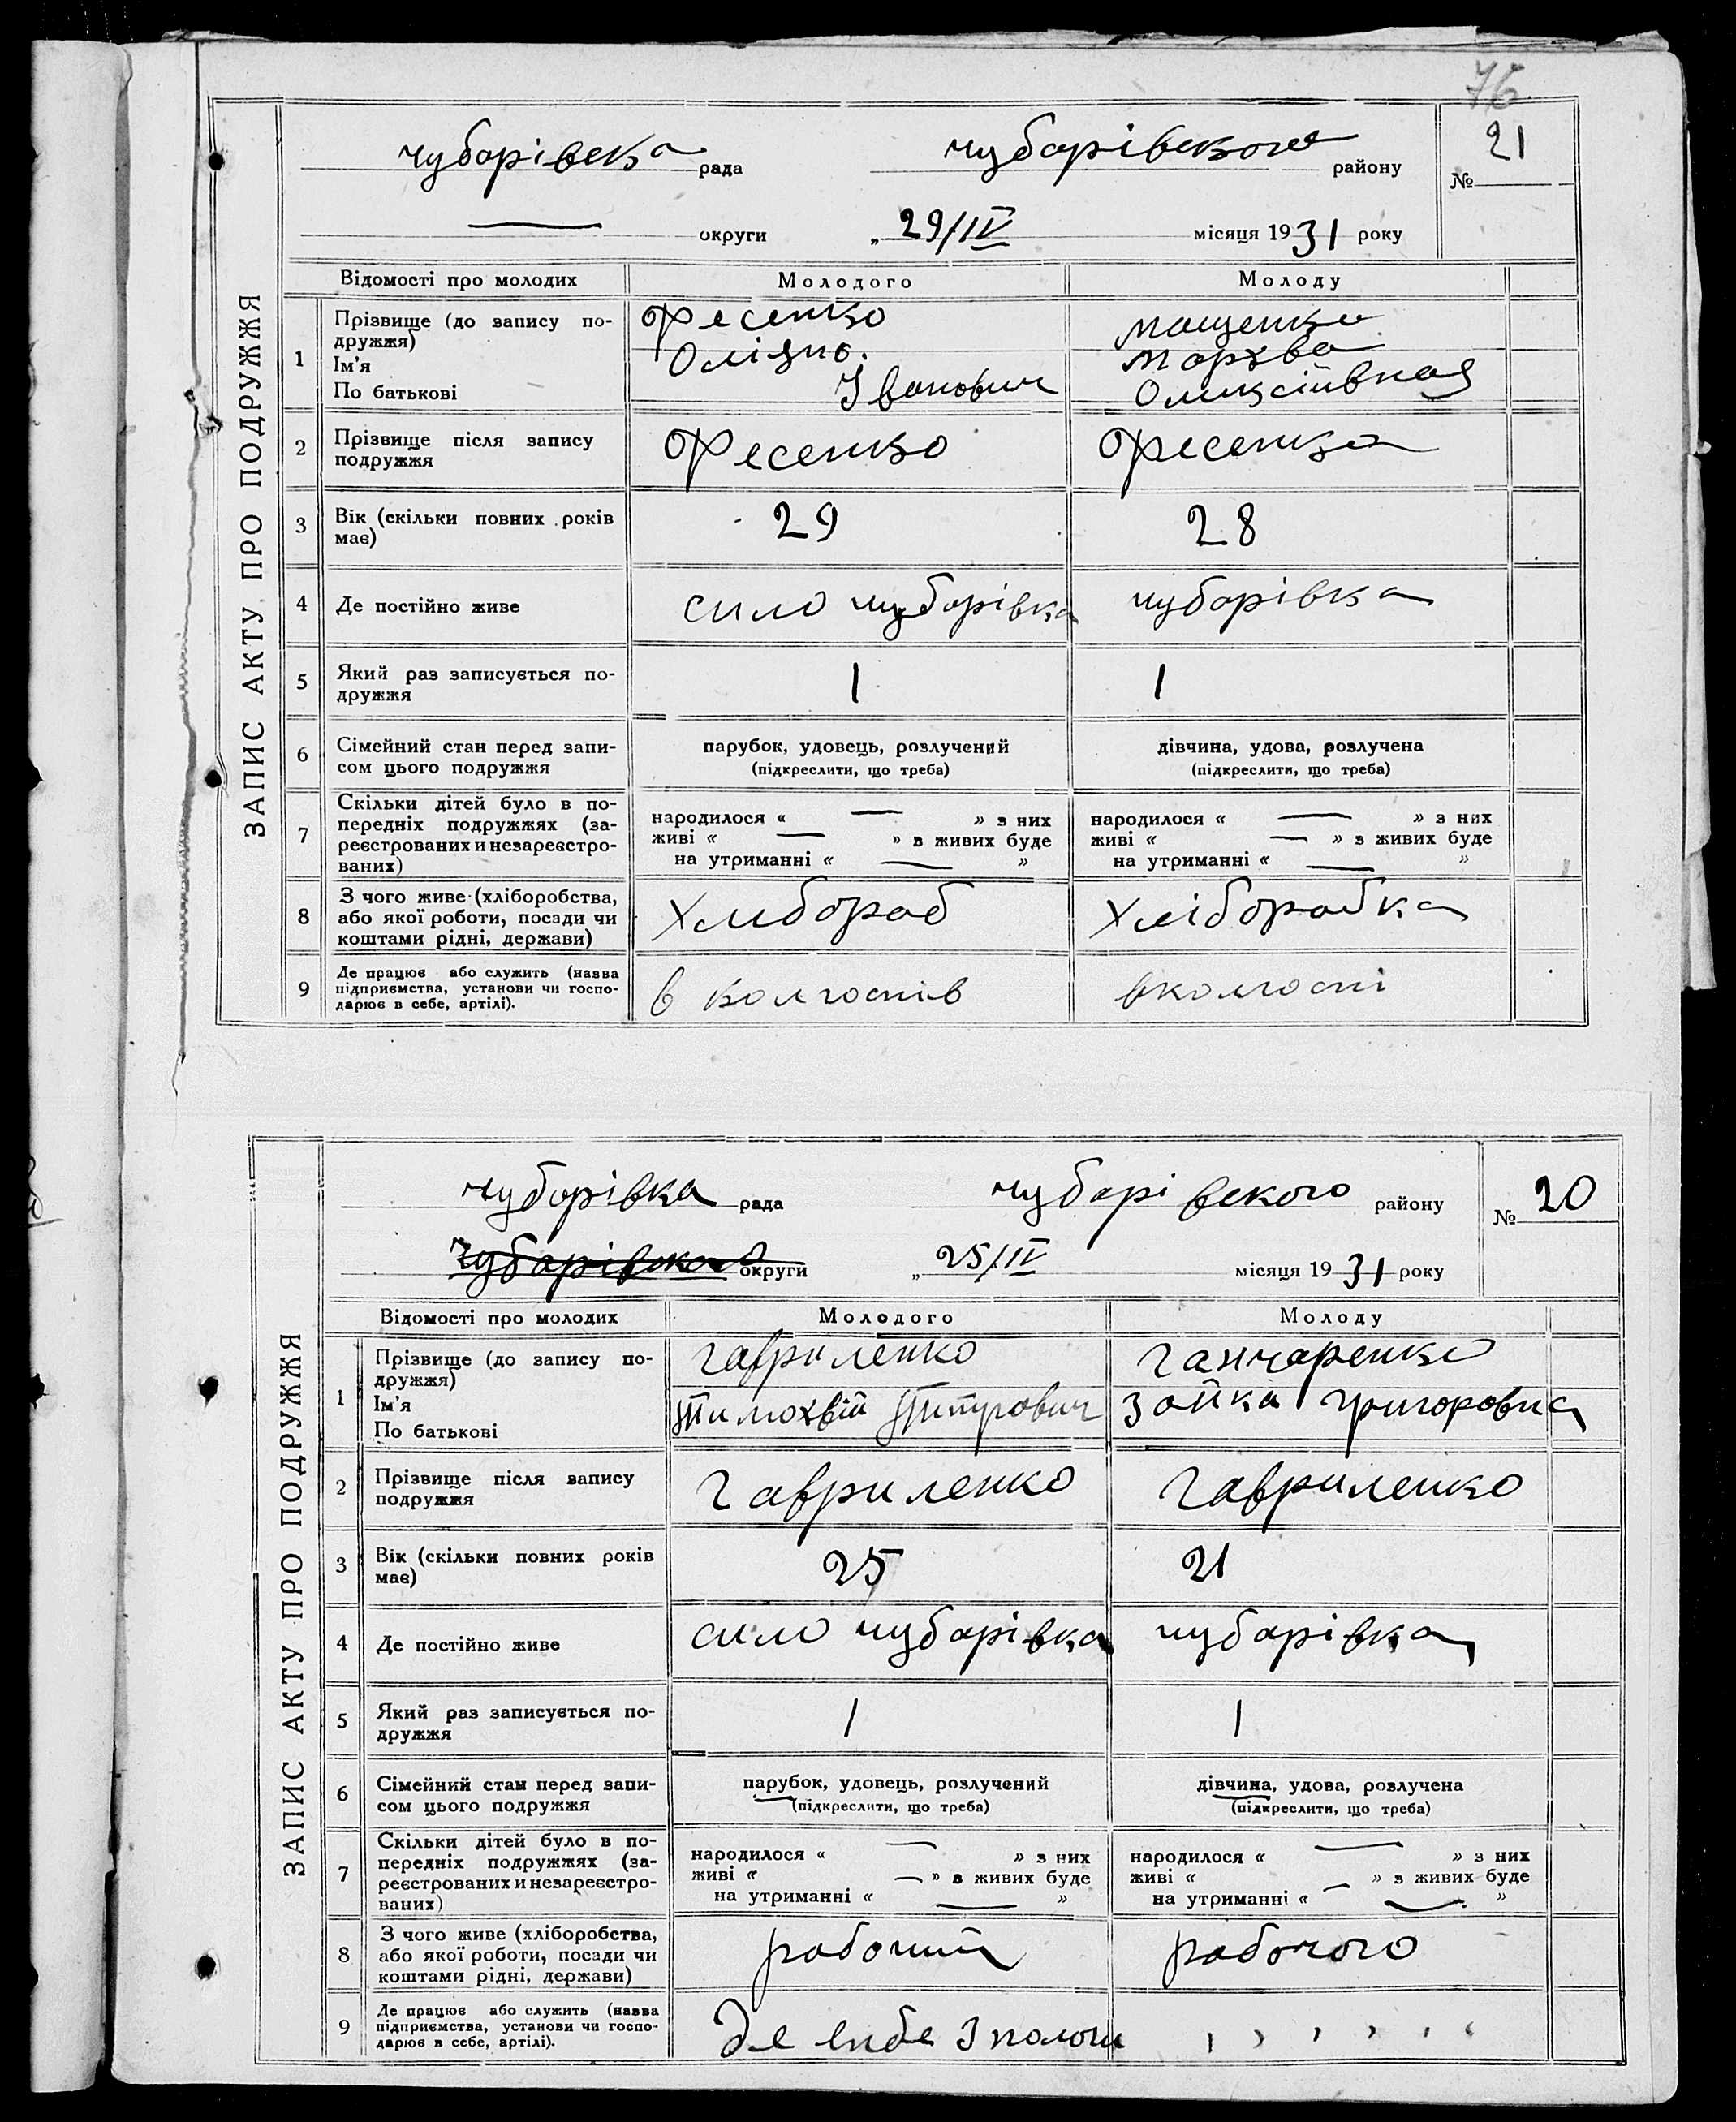 76
ЗАПИС АКТУ ПРО ПОДРУЖЖЯ
чубарівска рада чубарівского району № 21
округи „ 29/IV місяця 1931 року
Відомості про молодих Молодого Молоду
1 Прізвище (до запису по- Фесенко мащенко
дружжя)
Ім'я мархва
По батькові Іванович Оликсіивная
2 Прізвище після запису Фесенко Фесенка
подружжя
3 Вік (скільки повних років 29 28
має)
4 Де постійно живе сило чубарівка чубарівка
5 Який раз записується по- 1 1
дружжя
6 Сімейний стан перед запи- парубок, удовець, розлучений дівчина, удова, розлучена
сом цього подружжя (підкреслити, що треба) (підкреслити, що треба)
7 Скільки дітей було в по- народилося « — » з них народилося « — » з них
передніх подружжях (за- живі « — » в живих буде живі « — » з живих буде
реєстрованих и незареєстро- на утриманні « — » на утриманні « — »
ваних)
8 З чого живе (хліборобства, хлибораб хліборабка
або якої роботи, посади чи
коштами рідні, держави)
9 Де працює або служить (назва в колгоспів вколгоспі
підприємства, установи чи госпо-
дарює в себе, артілі).
ЗАПИС АКТУ ПРО ПОДРУЖЖЯ
чубарівка рада чубарівского району № 20
чубарівского округи „ 25/IV місяця 1931 року
Відомості про молодих Молодого Молоду
1 Прізвище (до запису по- гавриленко ганчаренко
дружжя)
Ім'я Тимохвій Питрович зойка григоровна
По батькові
2 Прізвище після запису гавриленко гавриленко
подружжя
3 Вік (скільки повних років 25 21
має)
4 Де постійно живе сило чубарівка чубарівка
5 Який раз записується по- 1 1
дружжя
6 Сімейний стан перед запи- парубок, удовець, розлучений дівчина, удова, розлучена
сом цього подружжя (підкреслити, що треба) (підкреслити, що треба)
7 Скільки дітей було в по- народилося « — » з них народилося « — » з них
передніх подружжях (за- живі « — » в живих буде живі « — » з живих буде
реєстрованих и незареєстро- на утриманні « — » на утриманні « — »
ваних)
8 З чого живе (хліборобства, рабочий рабочого
або якої роботи, посади чи
коштами рідні, держави)
9 Де працює або служить (назва
підприємства, установи чи госпо-
дарює в себе, артілі).